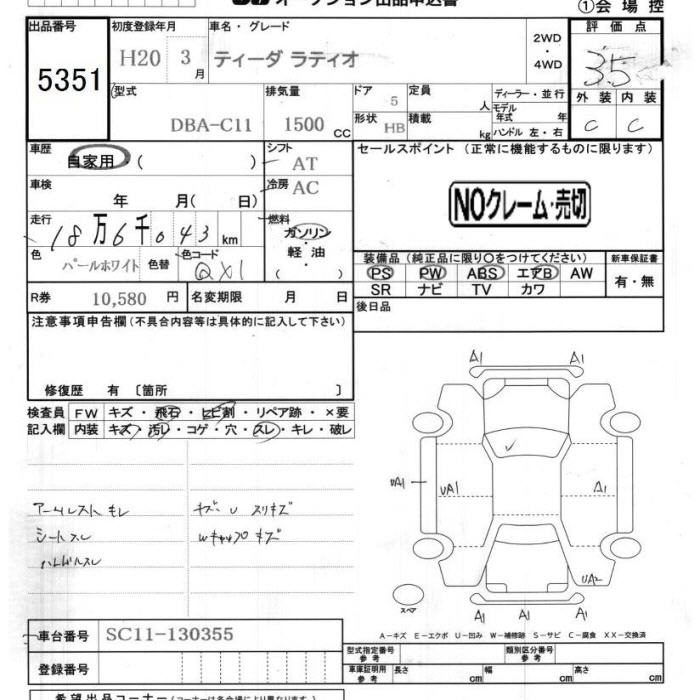 オークション出品申込書
①会場控
出品番号 初度登録年月 車名・グレード 評価点
5351 H20 3月 ティーダ ラティオ 2WD・4WD 3.5
型式 排気量 ドア 定員 ディーラー・並行 外装 内装
DBA-C11 1500cc 5 人 モデル年式 年 C C
形状 HB 積載 kg ハンドル 左・右
車歴 シフト セールスポイント (正常に機能するものに限ります)
自家用 ( ) AT
車検 冷房 AC
年 月( 日) NOクレーム・売切
走行 燃料
18万6千043km ガソリン
軽油
( )
色 パールホワイト 色替 色コード QX1
装備品 (純正品に限り○をつけてください) 新車保証書
PS PW ABS エアB AW 有・無
SR ナビ TV カワ
R券 10,580円 名変期限 月 日
後日品
注意事項申告欄 (不具合内容等は具体的に記入して下さい)
修復歴 有 〔箇所 〕
検査員 FW キズ・飛石・ヒビ割・リペア跡・×要
記入欄 内装 キズ・汚レ・コゲ・穴・スレ・キレ・破レ
A1 A1
UA1 UA1 A1
UA2
A1 A1 A1
スペア
シートスレ
ハンドルスレ
A-キズ E-エクボ U-凹み W-補修跡 S-サビ C-腐食 XX-交換済
車台番号 SC11-130355
登録番号
型式指定番号 参考 類別区分番号 参考
車庫証明用 参考 長さ cm 幅 cm 高さ cm
希望出品コーナー